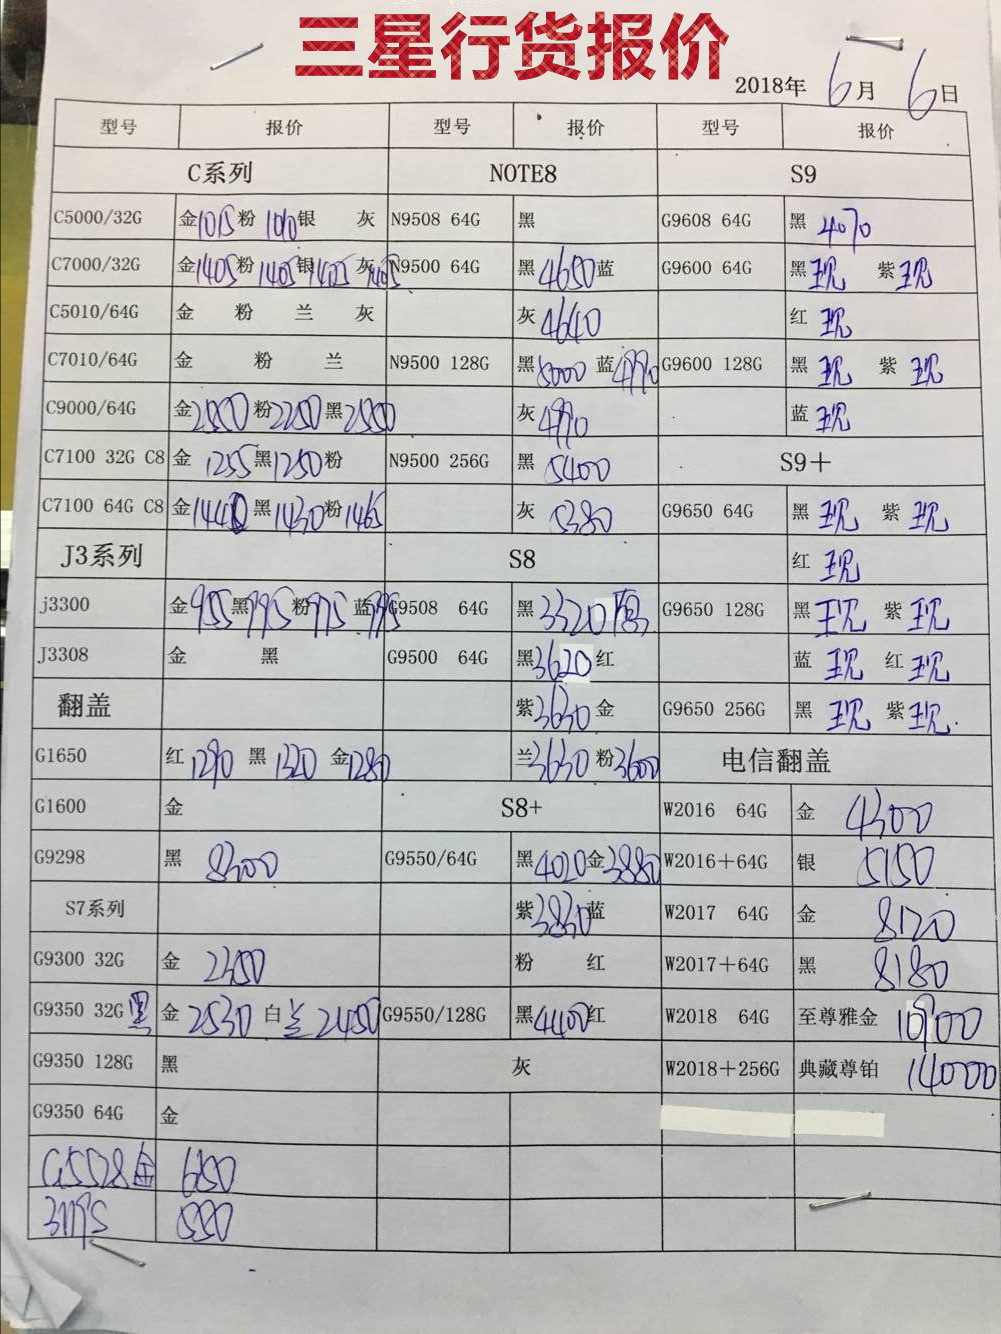 三星行货报价
2018年 6月 6日
型号 报价 型号 报价 型号 报价
C系列 NOTE8 S9
C5000/32G 金1015 粉1010 银 灰 N9508 64G 黑 G9608 64G 黑 4070
C7000/32G 金1405 粉1405 银1405 灰1405 N9500 64G 黑4650 蓝 G9600 64G 黑 现 紫 现
C5010/64G 金 粉 兰 灰 灰4640 红 现
C7010/64G 金 粉 兰 N9500 128G 黑5000 蓝4990 G9600 128G 黑 现 紫 现
C9000/64G 金 粉2250 黑 灰4990 蓝 现
C7100 32G C8 金 1255 黑1250 粉 N9500 256G 黑 5400 S9+
C7100 64G C8 金 黑1430 粉1465 灰 5380 G9650 64G 黑 现 紫 现
J3系列 S8 红 现
j3300 金955 黑995 粉975 蓝995 G9508 64G 黑3320 G9650 128G 黑 现 紫 现
J3308 金 黑 G9500 64G 黑3620 红 蓝 现 红 现
翻盖 紫3630 金 G9650 256G 黑 现 紫 现.
G1650 红 1290 黑 1320 金1280 兰3630 粉3600 电信翻盖
G1600 金 S8+ W2016 64G 金 4300
G9298 黑 8300 G9550/64G 黑4020 金3880 W2016+64G 银 5150
S7系列 紫3830 蓝 W2017 64G 金 8120
G9300 32G 金 2350 粉 红 W2017+64G 黑 8180
G9350 32G 黑 金 2530 白 兰 2450 G9550/128G 黑4400 红 W2018 64G 至尊雅金 10900
G9350 128G 黑 灰 W2018+256G 典藏尊铂 14000
G9350 64G 金
G5528 金 650
550